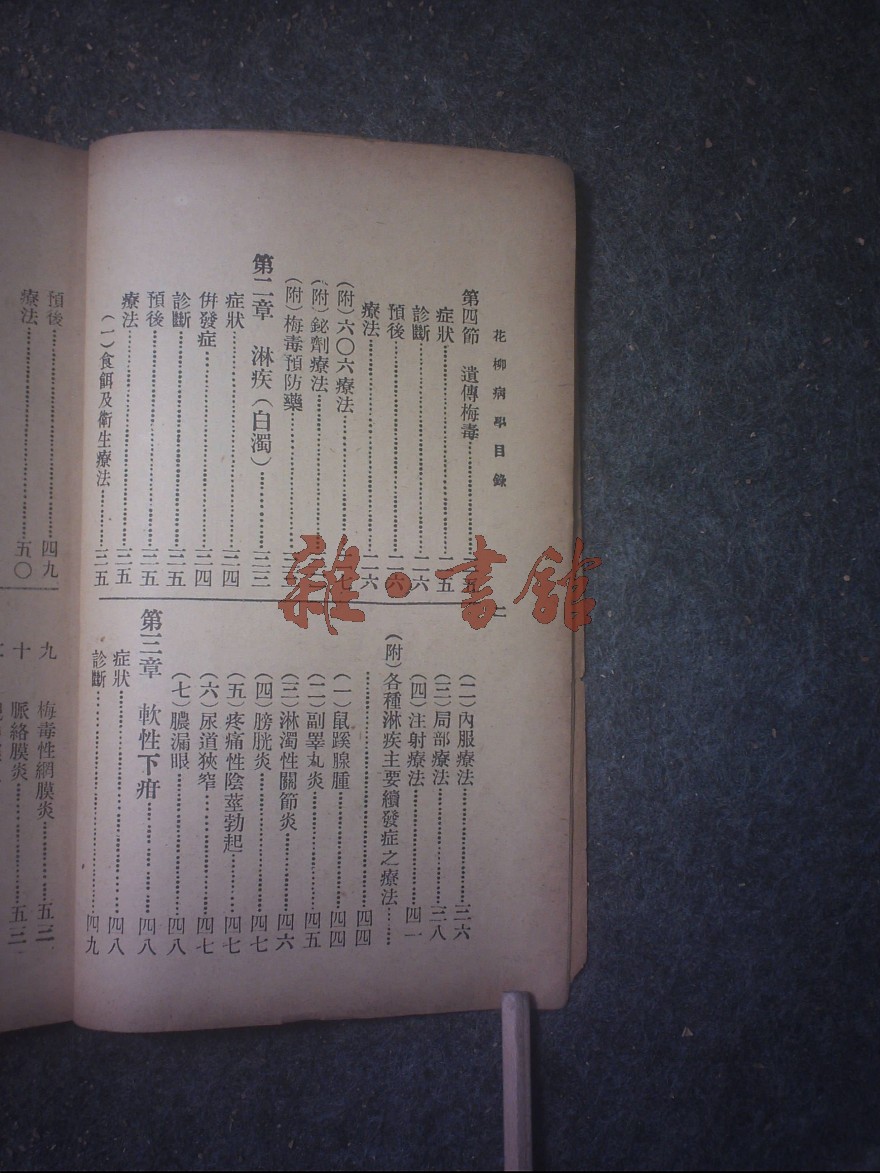 花柳病學目錄
二
第四節 遺傳梅毒……二五
症狀……二五
診斷……二六
預後……二六
療法……二六
(附)六〇六療法……二七
(附)鉍劑療法
(附)梅毒預防藥
第二章 淋疾(白濁)……三三
症狀……三四
併發症……三四
診斷……三五
預後……三五
療法……三五
(一)食餌及衛生療法……三五
(二)內服療法……三六
(三)局部療法……三八
(四)注射療法……四一
(附)各種淋疾主要續發症之療法……
……四四
(一)鼠蹊腺腫……四四
(二)副睪丸炎……四五
(三)淋濁性關節炎……四六
(四)膀胱炎……四七
(五)疼痛性陰莖勃起……四七
(六)尿道狹窄……四七
(七)膿漏眼……四八
第三章 軟性下疳……四八
症狀……四八
診斷……四九
預後……四九
療法……五〇
九 梅毒性網膜炎……五三
十 脈絡膜炎……五三
雜·書館